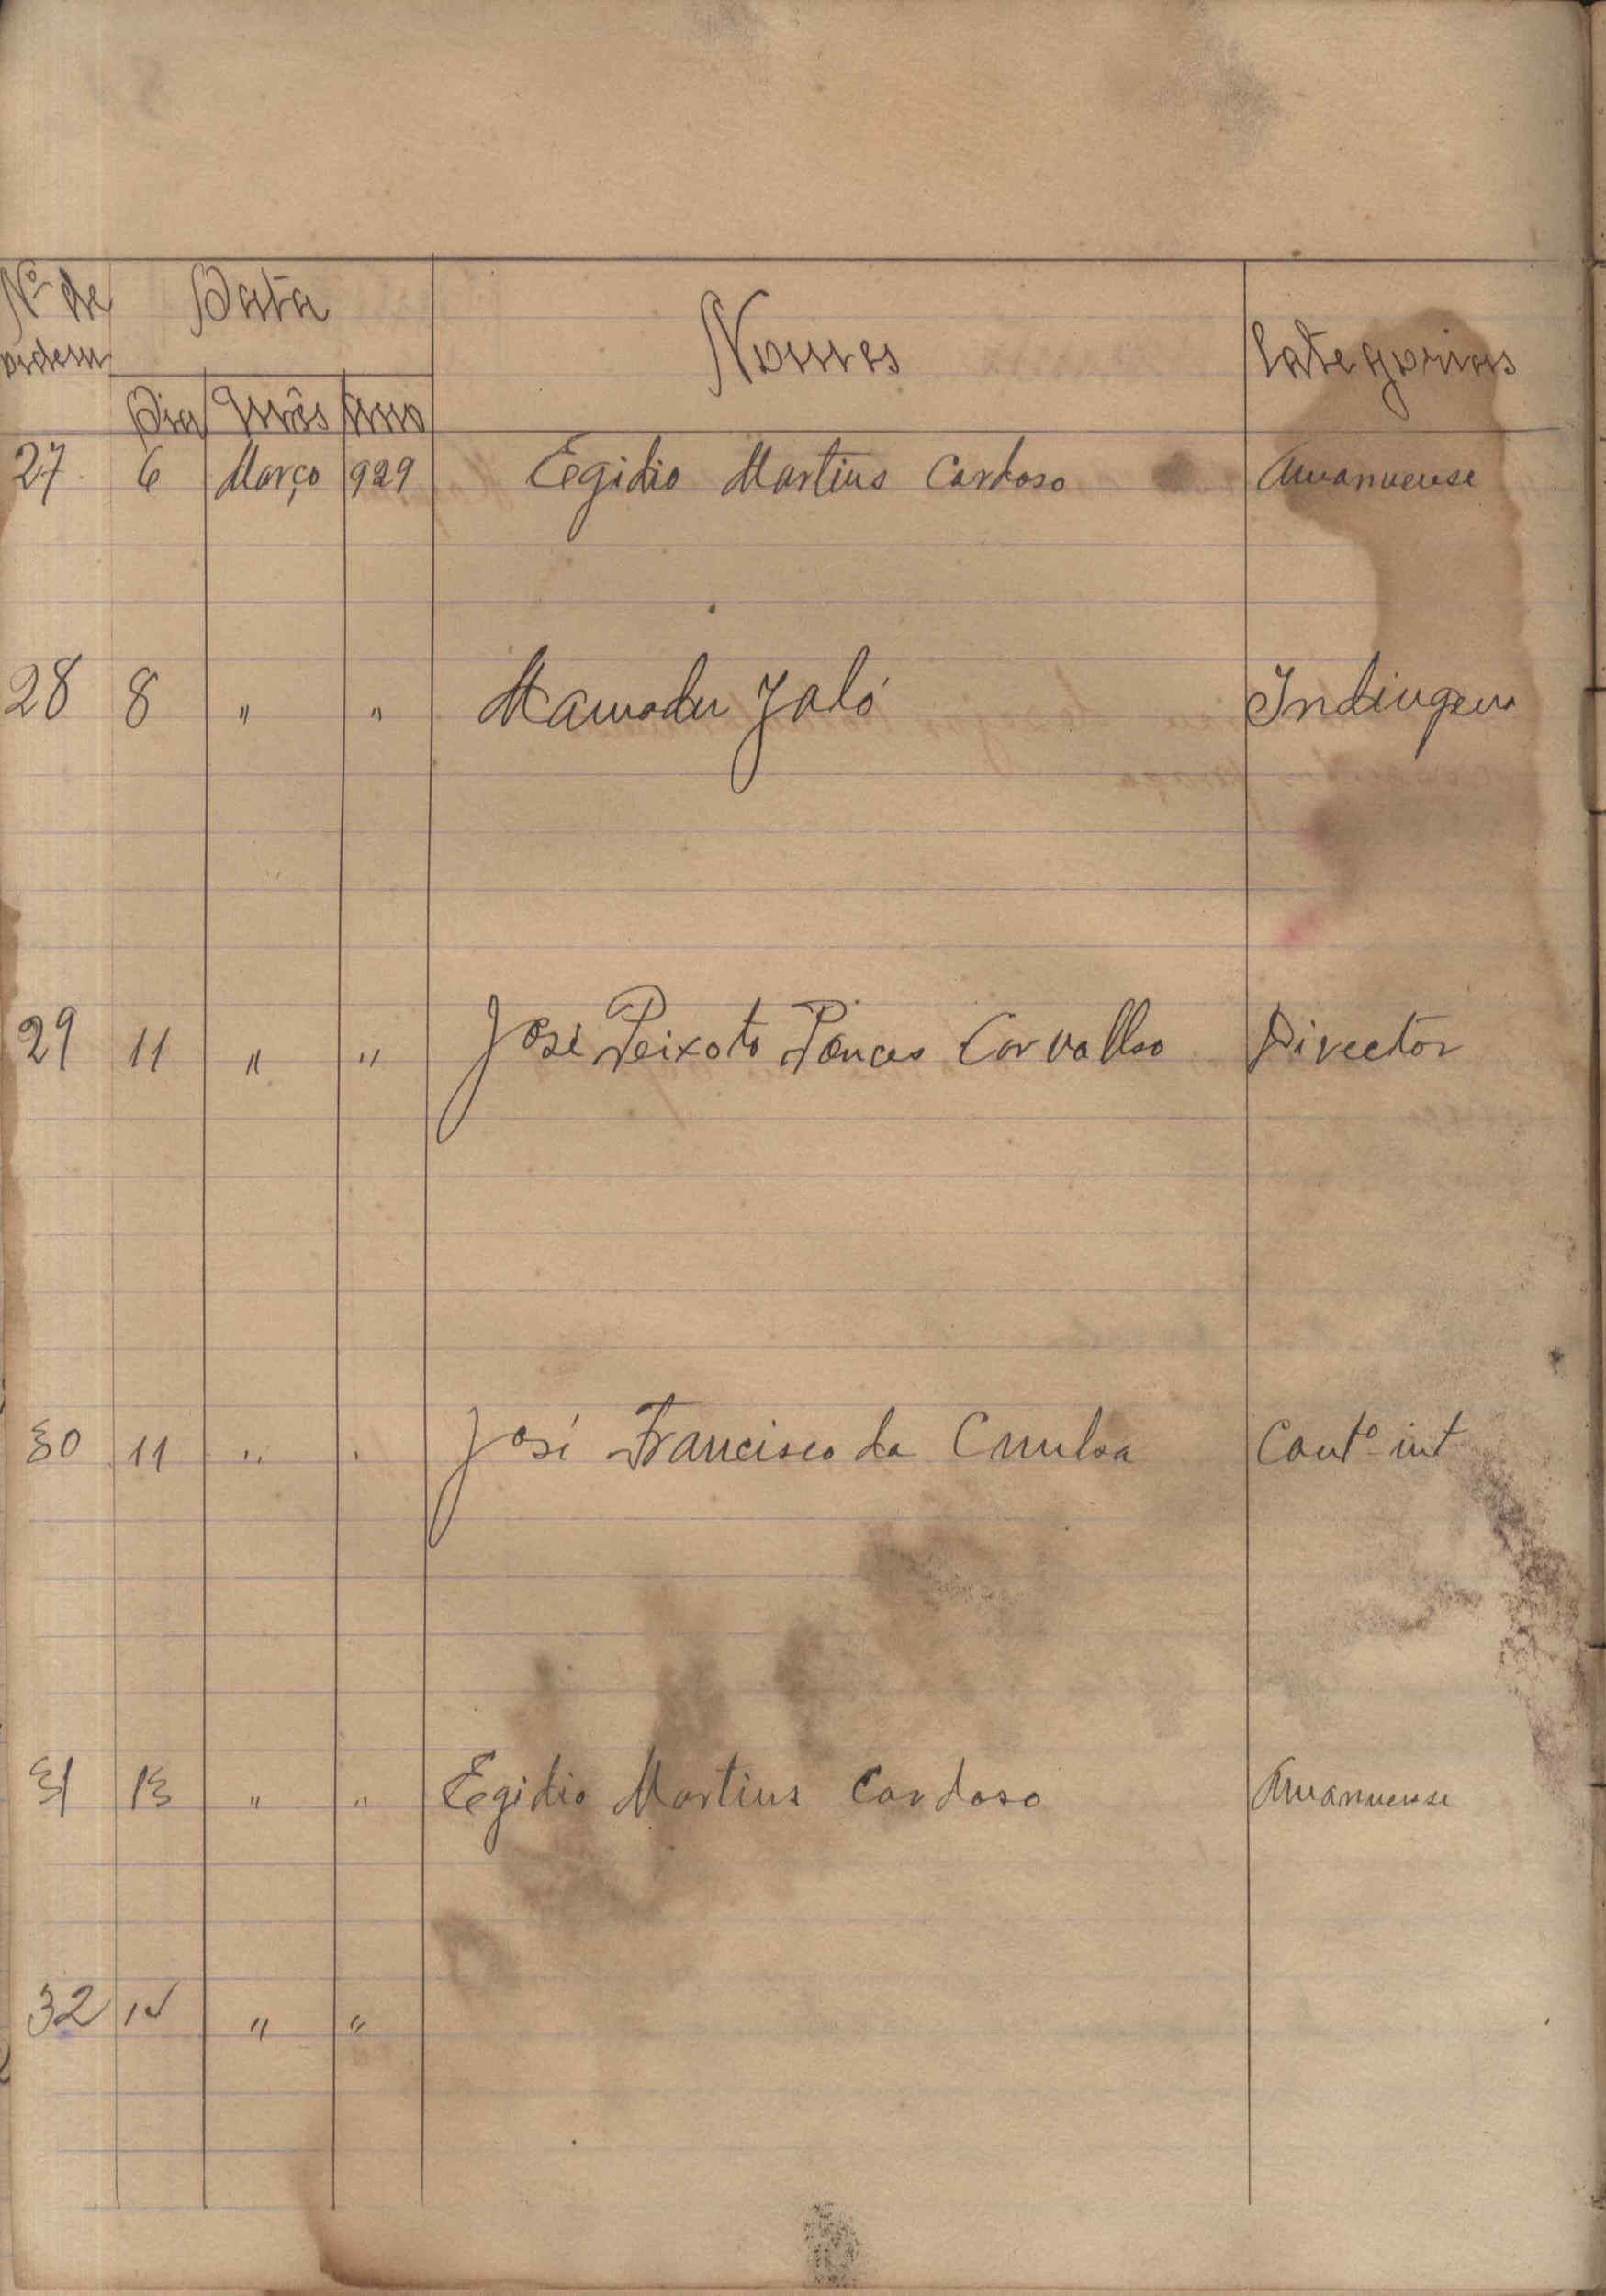 Nº de Data Nomes Categorias
ordem
Dia Mês Ano
27 6 Março 929 Egidio Martins Cardoso Amanuense
28 8 " " Mamadu Jaló Indingena
29 11 " " José Peixoto Ponces Carvalho Director
30 11 " " José Francisco da Cunha Contº int
31 13 " " Egidio Martins Cardoso Amanuense
32 14 " "